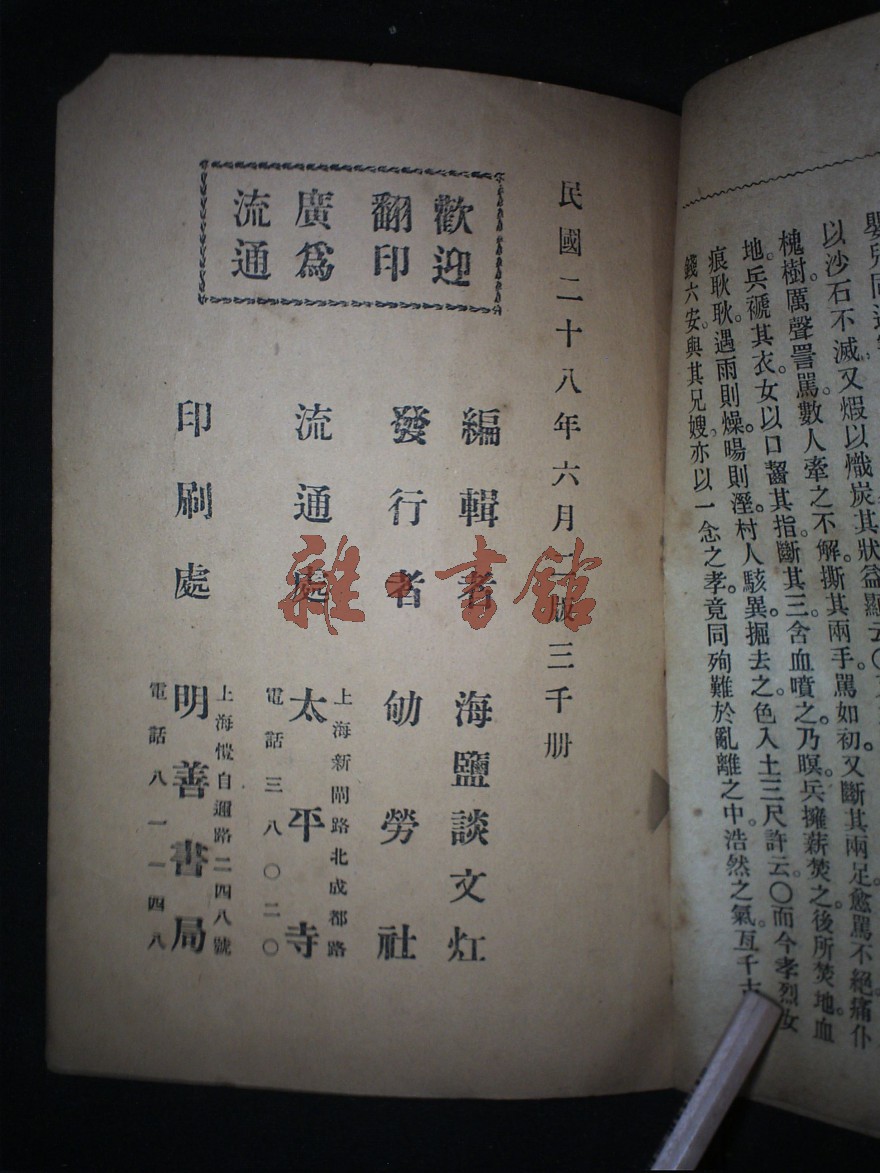 嬰兒同
以沙石不滅又煆以熾炭其狀益顯云〇
槐樹厲聲詈罵數人牽之不解撕其兩手罵如初又斷其兩足愈罵不絕痛仆
地。兵褫其衣。女以口齧其指斷其三含血噴之。乃暝。兵擁薪焚之。後所焚地血
痕耿耿。遇雨則燥。暘則溼。村人駭異掘去之。色入土三尺許云〇而今孝烈女
錢六安。與其兄嫂。亦以一念之孝。竟同殉難於亂離之中。浩然之氣。亙千古
民國二十八年六月 版三千册
歡迎
翻印
廣爲
流通
編輯者 海鹽談文灴
發行者 劬勞社
流通處 太平寺
上海新閘路北成都路
電話三八〇二〇
印刷處 明善書局
上海愷自邇路二四八號
電話八一一四八
雜·書館